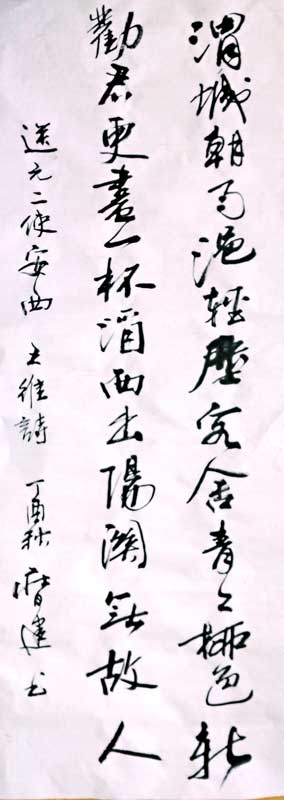 渭城朝雨浥輕塵客舍青々柳色新
勸君更盡一杯酒西出陽關無故人
送元二使安西 王維詩 丁酉秋 建书